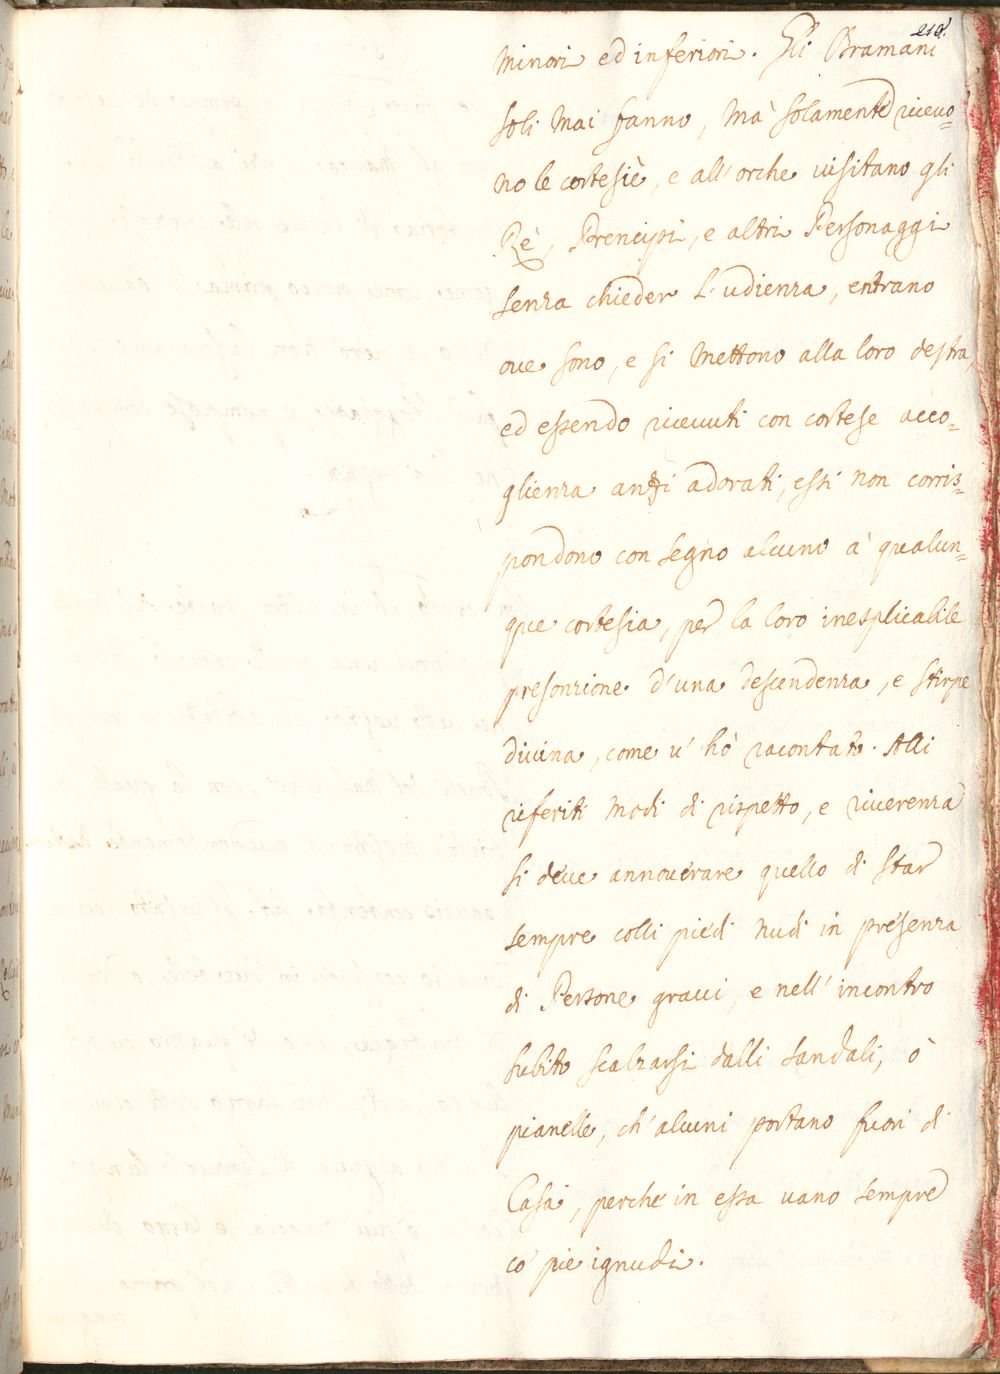 210.
minori ed inferiori. Gli Bramani
soli mai fanno, mà solamente riceuo=
no le cortesiè, e all'orche uisitano gli
Rè, Prencipi, e altri Personaggi
senza chieder l'udienza, entrano
oue sono, e si mettono alla loro destra,
ed essendo riceuuti con cortese acco=
glienza anzi adorati, essi non corris=
pondono con segno alcuno à qualun=
que cortesia, per la loro inesplicabile
presonzione d'una descendenza, e stirpe
diuina, come u' hò racontato. Alli
riferiti modi di rispetto, e riuerenza
si deue annouerare quello di star
sempre colli piedi nudi in presenza
di Persone graui, e nell' incontro
subito scalzarsi dalli sandali, ò
pianelle, ch'alcuni portano fuori di
Casa, perche in essa uano sempre
co' pie ignudi.